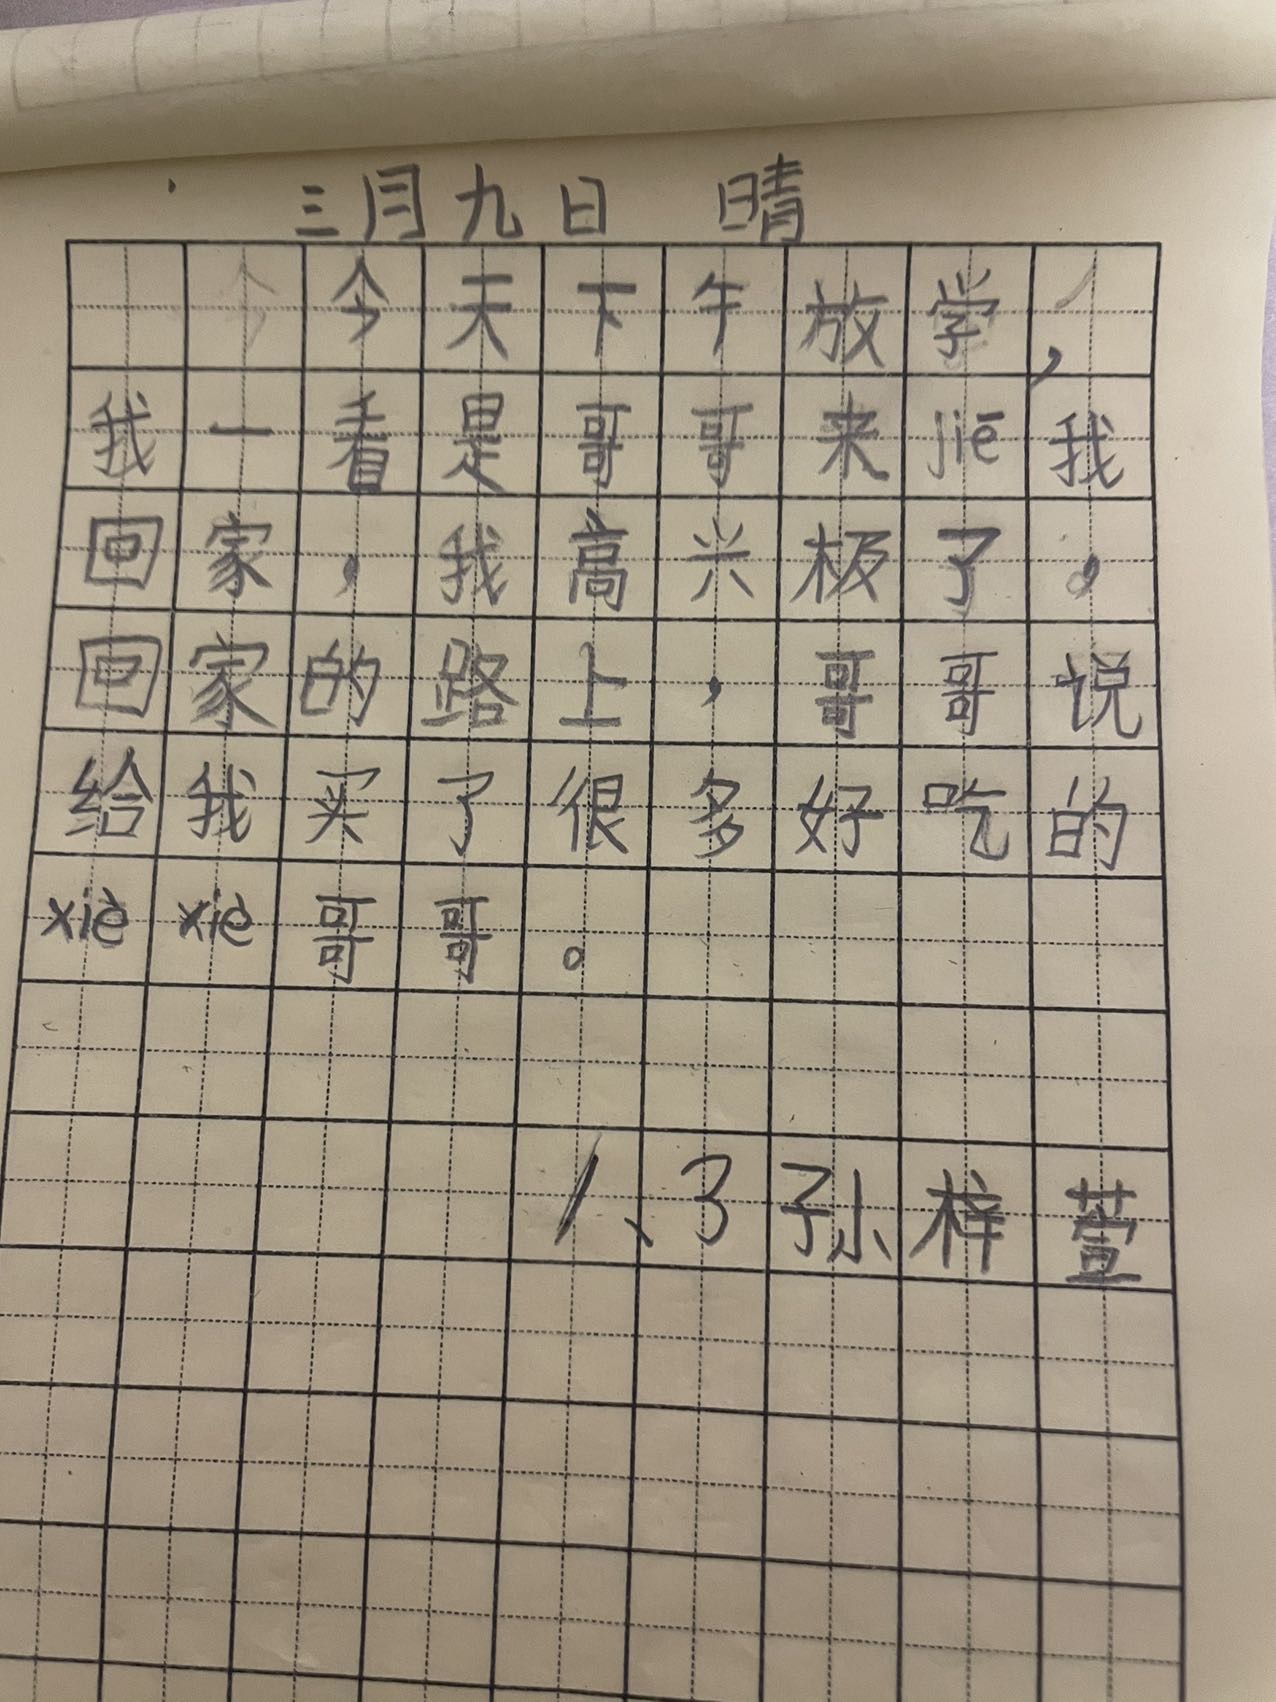 三月九日 晴
今天下午放学，
我一看是哥哥来jiē我
回家，我高兴极了，
回家的路上，哥哥说
给我买了很多好吃的
xiè xiè哥哥。
1、3孙梓萱